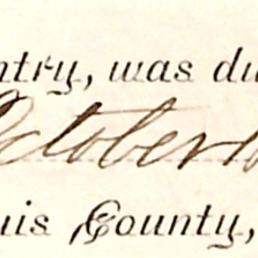 ntry, was du
October
uis County,